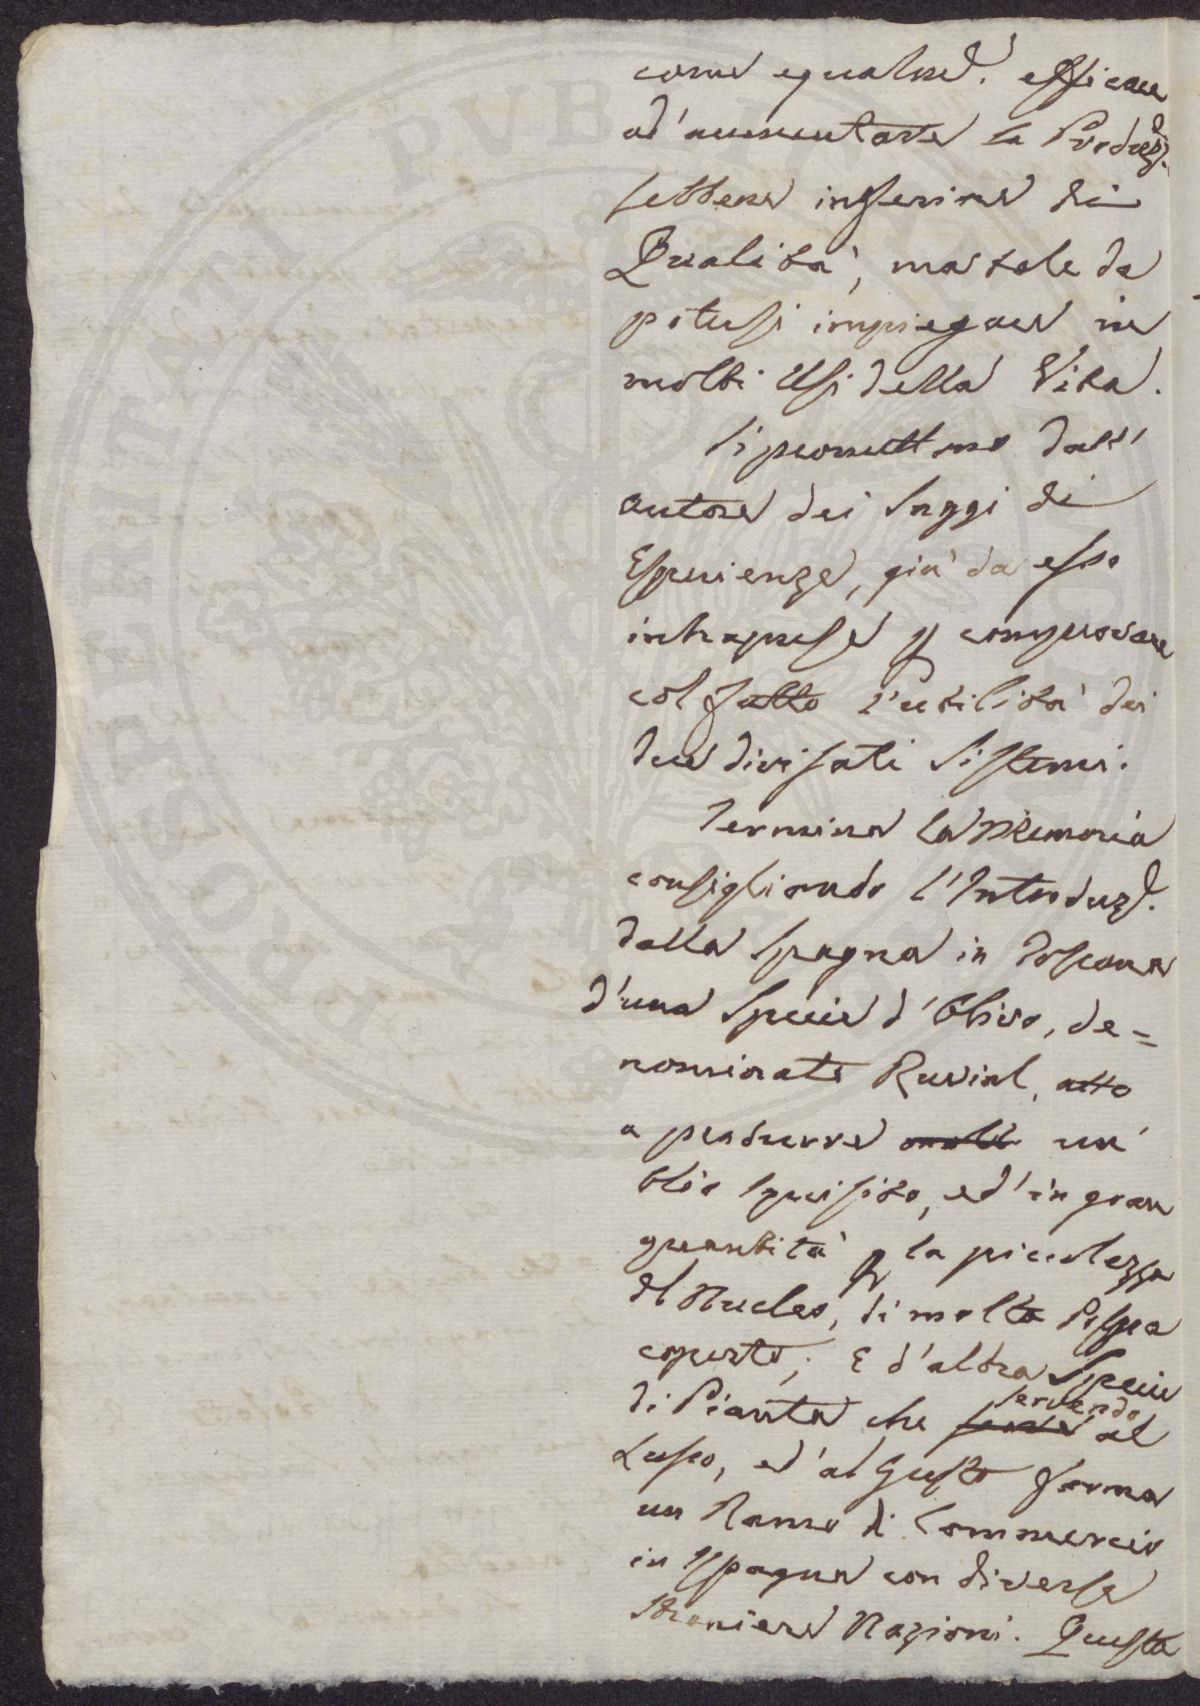 come egualme. efficace
ad'aumentare la Produz.e
sebbene inferiore di
Qualità, ma tale da
potersi impiegare in
molti Usi della Vita.
Si promettono dall'
autore dei Saggi di
Esperienze, già da esso
intraprese p comprovare
col fatto l'utilità dei
due divisati Sistemi.
Termina la Memoria
consigliando l'Introduze.
dalla Spagna in Toscana
d'una Specie d'Olivo, de=
nominato Ruvial, atto
a produrre molt un'
Olio squisito, ed'in gran
quantità p la piccolezza
del Nucleo, di molta Polpa
coperto; E d'altra Specie
di Pianta che serve servendo al
Lusso, ed'al Gusto forma
un Ramo di Commercio
in Ispagna con diverse
Straniere Nazioni. Questa